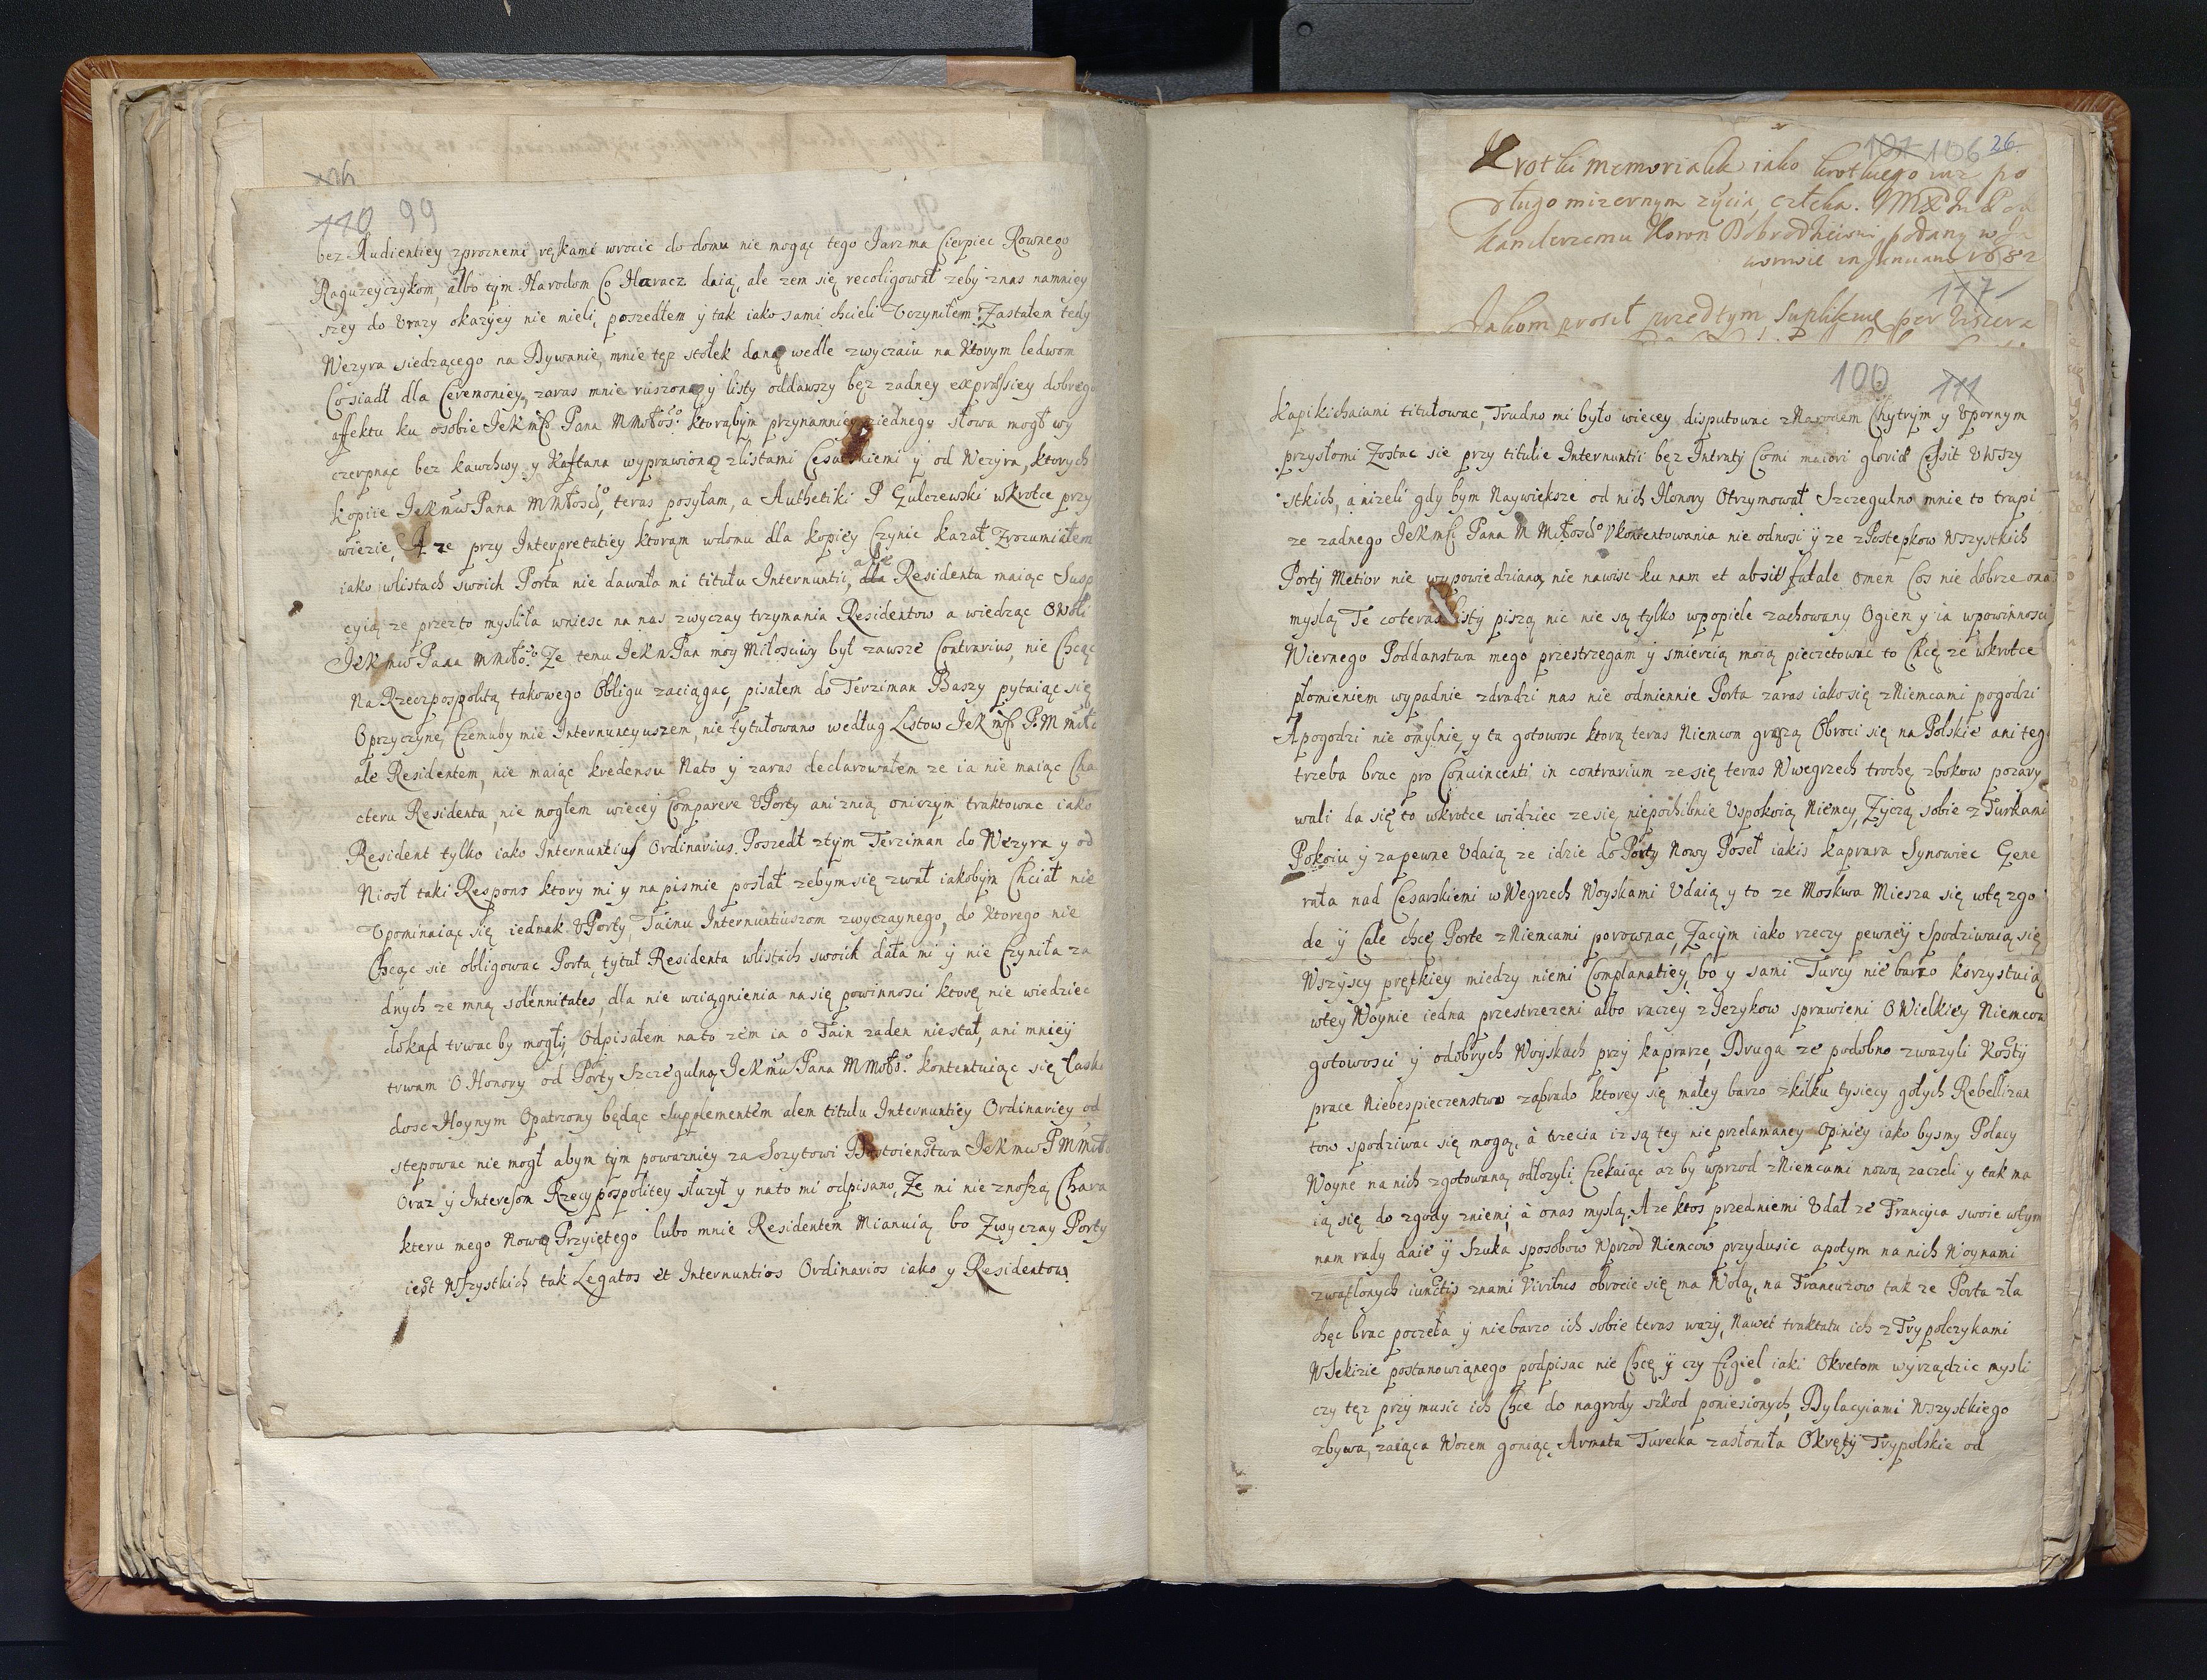 110 99
bez Audientiey zproznemi rękami wrocic do domu nie mogąc tego Jarzma Cierpiec Rownego
Raguzeyczykom, albo tym Narodom Co Haracz daią, ale zem się recoligował zeby znas namniey
szey do Urazy okazyey nie mieli, poszedłem y tak iako sami chcieli Uczyniłem. Zastałem tedy
Wezyra siedzącego na Dywanie, mnie tęz stołek daną wedle zwyczaiu na Ktorym ledwom
Co siadł dla Ceremoniey, zaras mnie ruszoną y listy oddawszy bęz zadney expressiey dobrego
affektu ku osobie JeKmści Pana MMłośo ktorąbym przynamniey ziednego słowa mogł wy
czerpnąc bez kawchwy y Kaftana wyprawioną zlistami Cesarskiemi y od Wezyra, ktorych
kopiie JeKmw Pana MMłoscio, teras posyłam, a Authetiki P Gulczewski wkrotce przy
wiezie, A ze przy Interpretatiey ktorąm wdomu dla kopiey Czynic kazał Zrozumiałem
iako wlistach swoich Porta nie dawała mi titułu Internuntii, ale Residenta maiąc Susp
cyią ze przezto mysliła wniesc na nas zwyczay trzymania Residentow a wiedząc Owoli
JeKmw Pana MMło:so Ze temu JeKm Pan moy Miłosciwy był zawsze Contrarius, nie Chcąc
Na Rzeczpospolitą takowego Obligu zaciągac, pisałem do Terziman Baszy pytaiąc się
Oprzyczynę, Czemuby mie Internuncyuszem, nie tytułowano według Listow JeKmści P. M miło
ale Residentem, nie maiąc kredensu Nato y zaras declarowałem ze ia nie maiąc Cha
cteru Residenta, nie mogłem wiecey Comparere UPorty ani znią oniczym traktowac iako
Resident tylko iako Internuntius Ordinarius. Poszedł ztym Terziman do Wezyra y od
Niosł taki Respons ktory mi y na pismie posłał zebym się zwał iakobym Chciał nie
Upominaiąc się iednak UPorty, Tainu Internuntiuszom zwyczaynego, do Ktorego nie
Chcąc sie obligowac Porta, tytuł Residenta wlistach swoich dała mi y nie Czyniła za
dnych ze mną solennitates, dla nie wciągnienia na się powinnosci ktorę nie wiedziec
dokąd trwac by mogły, Odpisałem nato zem ia o Tain zaden niestał, ani mniey
trwam O Honory od Porty Szczegulną JeKmw Pana MMło:so kontentuiąc się Łaską
dosc Hoynym Opatrzony będąc Supplementem alem titulu Internuntiey Ordinariey od
stepowac nie mogł abym tym powazniey za Sozytowi Dostoienstwa JeKmw P Mmiło
Oraz y Interesom Rzeczypospolitey słuzył y nato mi odpisano, Ze mi nie znoszą Chara
kteru mego Nową Przyiętego lubo mnie Residentem Mianuią bo Zwyczay Porty
iest Wszystkich tak Legatos et Internuntios Ordinarios iako y Residentow
107 106 26.
Krotki memorialik iako krotkiego iuz po
długo mizernym zyciu, człeka.
kanclerzemu Koron Dobrodzieiowi podany w
in Januario 1682
117
Jakom prosił przedtym Suplikuię per viscera
100 111
Kapikichaiami titułowac, Trudno mi było wiecey disputowac zNarodem Chytrym y Upornym
przysłomi Zostac sie przy titulie Internuntii bęz Intraty Comi maiori gloriæ Cessit UWszy
stkich, a nizeli gdy bym Naywiększe od nich Honory Otrzymował Szczegulno mnie to trapi
ze zadnego JeKmści Pana M Miłoscio Ukontentowania nie odnosi y ze zPostepkow Wszystkich
Porty Metior nie wypowiedzianą nie nawisc ku nam et absit fatale omen Cos nie dobrze ona
myslą Te coteras listy piszą nic nie są tylko wpopiele zachowany Ogien y ia wpowinnosci
Wiernego Poddanstwa mego przestrzegam y smiercią moią pieczetowac to Chcę ze wkrotce
płomieniem wypadnie zdradzi nas nie odmiennie Porta zaras iakosię zNiemcami pogodzi
A pogodzi nie omylnie, y ta gotowosc ktorą teras Niemcom grozą Obroci się na Polskie ani teg
trzeba brac pro Convincenti in contrarium ze się teras Wwegrzech trochę zbokow pozary
wali da się to wkrotce widziec ze się niepochibnie Uspokoią Niemcy, Zyczą sobie z Turkami
Pokoiu y zapewne Udaią ze idzie do Porty Nowy Poseł iakis Kaprara Synowiec Gene
rała nad Cesarskiemi w Wegrzech Woyskami Udaią y to ze Moskwa Miesza się wtę zgo
de y Cale chcę Porte zNiemcami porownac, Zaczym iako rzeczy pewney Spodziwaią się
Wszyscy prętkiey miedzy niemi Complanatiey, bo y sami Turcy nie barzo korzystuią
wtey Woynie iedna przestrzezeni albo raczey zJezykow sprawieni O Wielkiey Niemcow
gotowosci y odobrych Woyskach przy kaprarze, Druga ze podobno zwazyli Koszty
prace Niebespieczenstwo zaprado ktorey się małey barzo zkilku tysiecy gołych Rebellizan
tow spodziwac się mogą, à trzecia iz są tey nie przełamaney Opiniey iako bysmy Polacy
Woyne na nich zgotowaną odłozyli Czekaiąc az by wprzod zNiemcami nową zaczeli y tak ma
ią się do zgody zniemi, à onas myslą. A ze ktos przedniemi Udał ze Francyia swoie wtym
nam rady daie y Szuka sposobow Wprzod Niemcow przydusic apotym na nich Woynami
zwąflonych iunctis znami Viribus obrocic się ma Wolą, na Francuzow tak ze Porta zła
chęc brac poczeła y niebarzo ich sobie teras wazy, Nawet traktatu ich z Trypolczykami
WSekizie postanowiąnego podpisac nie Chcę y czy Figiel iaki Okretom wyrządzic mysli
czy tęz przy music ich Chce do nagrody szkod poniesionych, Dylacyiami Wszystkiego
zbywa, zaiąca Wozem goniąc, Armata Turecka zasłoniła Okręty Trypolskie od